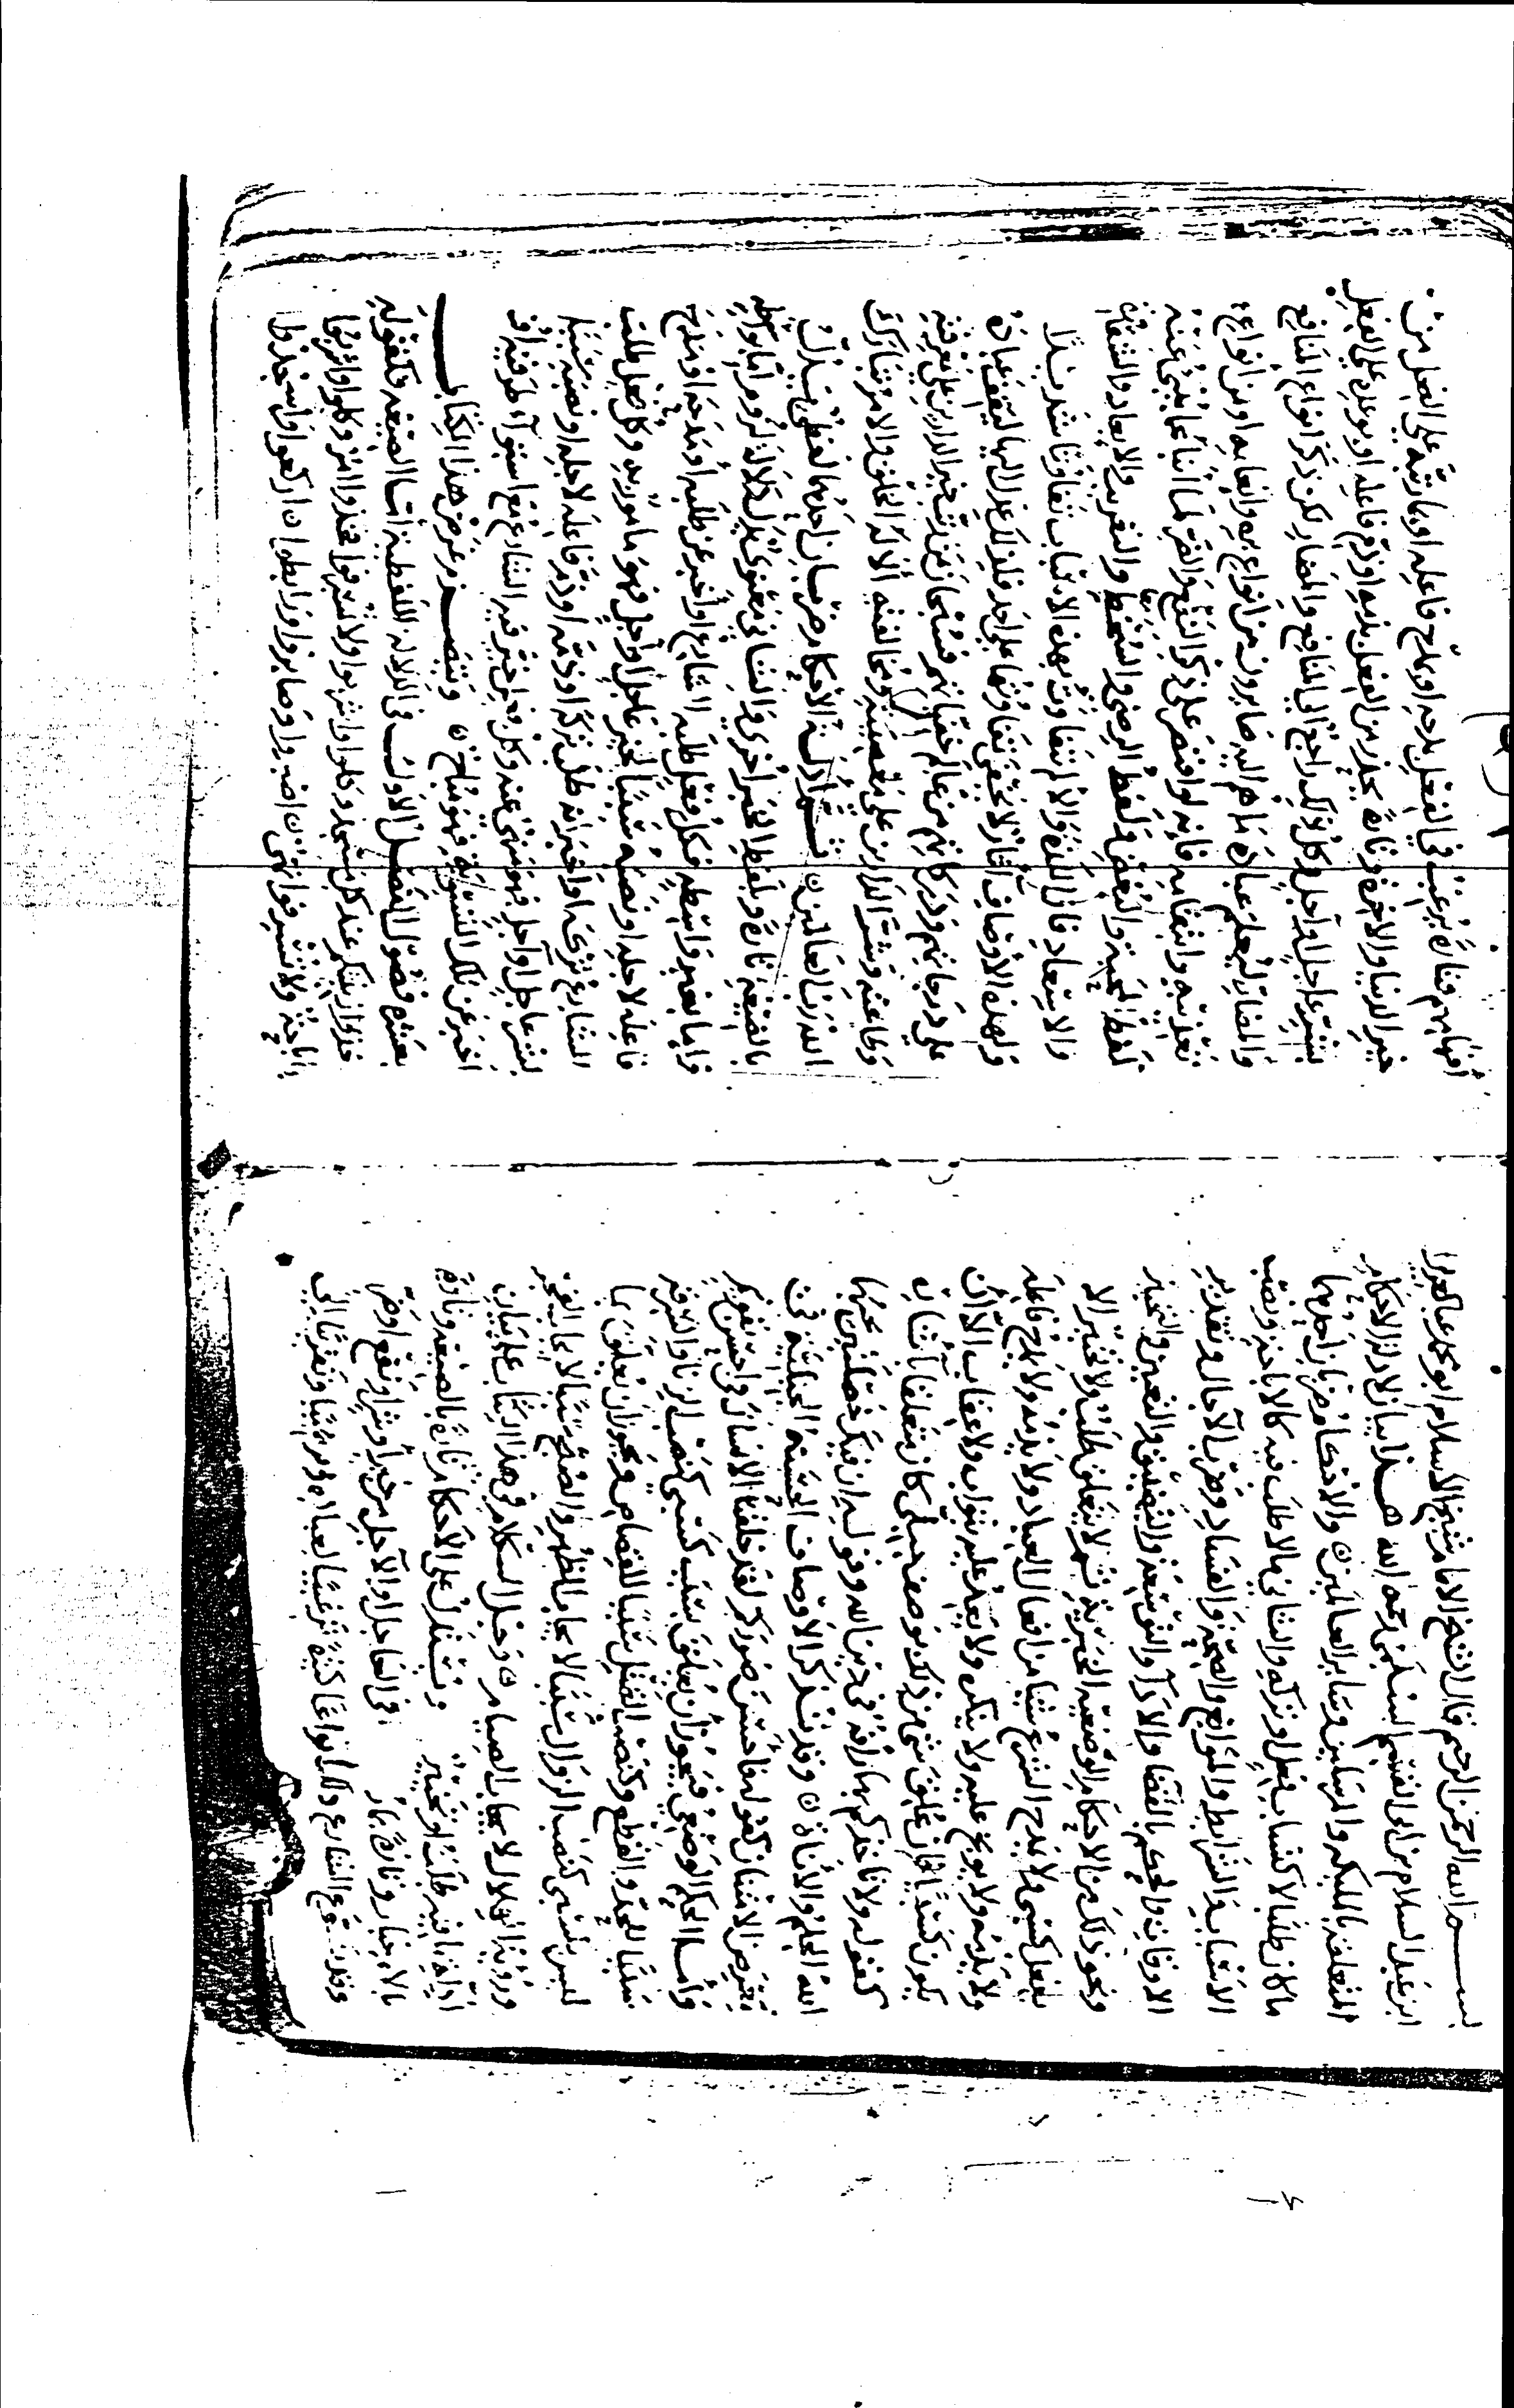 بسم الله الرحمن الرحيم قال الشيخ الامام شيخ الاسلام ابو محمد عبد العزيز
ابن عبد السلام بن ابي القسم السلمي رحمه الله هذا بيان لادلة الاحكام
المتعلقة بالملائكة والمرسلين وسائر العالمين والاحكام ضربان احدهما
ما كان طلبا لاكتساب فعل او تركه والثاني ما لا طلب فيه كالاباحة ونصب
الاسباب والشرايط والموانع والصحة والفساد وضرب الآجال وتقدير
الاوقات والحكم بالقضا والادآ والتوسعة والتضييق والتعيين والتخيير
ونحو ذلك من الاحكام الوضعية الخبرية ثم لا يتعلق طلب ولا تخيير الا
بفعل كسبي ولا يمدح الشرع شيئا من افعال العباد ولا يذمه ولا يمدح فاعله
ولا يذمه ولا يوبخ عليه ولا ينكره ولا يعد عليه بثواب ولا عقاب الا ان
يكون كسبيا فان علق شي من ذلك بوصف جبلي كان متعلقا بآثاره
كقوله ولا تاخذكم بهما رأفة في دين الله وقوله ان فيك خصلتين يحبهما
الله الحلم والاناة وقد تذكر الاوصاف الحسنة الجبلية في
معرض الامتنان كقوله فاحسن صوركم لقد خلقنا الانسان في احسن تقويم
واما الحكم الوضعي فيجوز ان يعلق بسبب كسبي كنصب الزنا والسرقة
سببا للحد والقطع وكنصب القتل سببا للقصاص ويجوز ان يعلق بما
ليس بكسبي كنصب الزوال سببا لايجاب الظهر والصبح سببا لايجاب الفجر
ورؤية الهلال لايجاب الصيام وجل الكلام في هذا الكتاب على بيان
ادلة ما فيه طلب او تخيير ويستدل على الاحكام تارة بالصيغة وتارة
بالاخبار وتارة بما في العاجل والآجل من خير او شر او نفع او ضر
وقد نوع الشارع ذلك انواعا كثيرة ترغيبا لعباده وترهيبا وتقريبا الى
افهامهم فتارة يرغب في الفعل بمدحه او مدح فاعله او بما رتبه على الفعل من
خير الدنيا والاخرة وتارة يحذر من الفعل بذمه او ذم فاعله او بوعيد على الفعل
بشر عاجل او آجل وكل ذلك راجع الى المنافع والمضار لكن ذكر انواع المنافع
والمضار ليعلم عباده ما هم اليه صايرون من انواع بره وانعامه او من انواع
تعذيبه وانتقامه فانه لو اقتصر على ذكر النفع والضر لما انبأ عما ينبئ عنه
لفظ المحبة والبغض ولفظ الرضى والسخط والتقريب والابعاد والشقاوة
والاسعاد فان اللذة والالم تتفاوت بهذه الاسباب تفاوتا شديدا
ولهذه الاوصاف آثار لا يخفى تفاوتها على احد فلذلك عدل اليها ليقف عباده
على درجاتهم ودركاتهم من عالم خفياتهم فسبحان من رتب خير الدارين على معرفته
وطاعته وشر الدارين على معصيته ومخالفته ألا له الخلق والامر تبارك
الله رب العالمين ثم ادلة الاحكام ضربان احدهما لفظي يستدل
بالصيغة تارة وبلفظ الخبر اخرى والثاني معنوي يدل دلالة لزوم اما بواسطة
واما بغير واسطة فكل فعل طلبه الشارع او اخبر عن طلبه او مدحه او مدح
فاعله لاجله او نصبه سببا لخير عاجل او آجل فهو مامور به وكل فعل طلب
الشارع تركه او اخبر انه طلب تركه او ذمه او ذم فاعله لاجله او نصبه سببا
لشر عاجل او آجل فهو منهي عنه وكل فعل خير فيه الشارع مع استوآء طرفيه او
اخبر عن تلك التسوية فهو مباح وينحصر غرض هذا الكتاب
بعشرة فصول الفصل الاول في الدلالة اللفظية اما الصيغة فكقوله
خذوا زينتكم عند كل مسجد وكلوا واشربوا ولا تسرفوا فخذوا امر وكلوا واشربوا
اباحة ولا تسرفوا نهي اصبروا وصابروا ورابطوا اركعوا واسجدوا